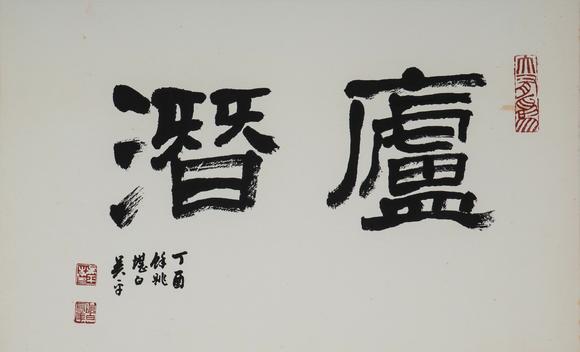 廬潛
丁酉
餘姚
堪白
吳平